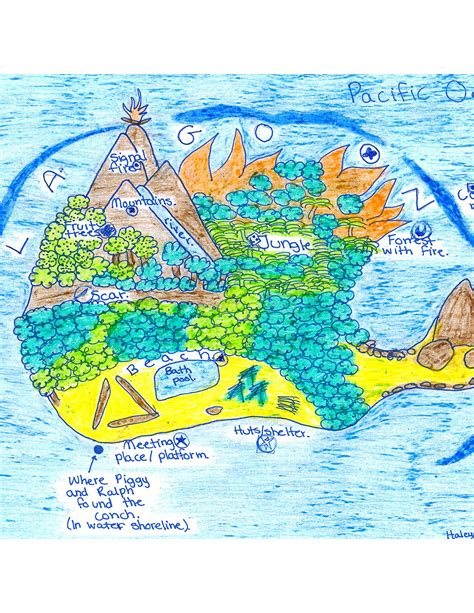 Pacific O
L A G O O N
Signal
Fire
Mountains.
River.
Fruit
trees
Jungle
Forrest
with Fire.
Scar.
Beach
Bath
pool.
Meeting
place/platform.
Huts/shelter.
Where Piggy
and Ralph
found the
conch.
(In water shoreline).
Haley